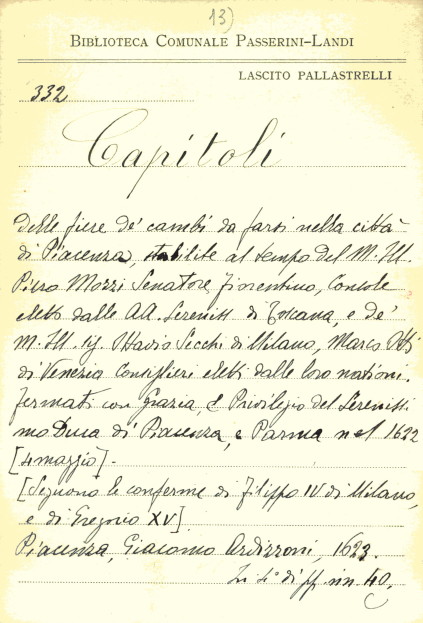 13)
BIBLIOTECA COMUNALE PASSERINI-LANDI
LASCITO PALLASTRELLI
332
Capitoli
Delle fiere de' cambi da farsi nella città
di Piacenza, stabilite al tempo del M. Ill.
Piero Mozzi Senatore fiorentino, Console
eletto dalle AA. Sereniss di Toscana, e de'
M. Ill. sig. Ottavio Secchi di Milano, Marco Otti
di Venezia Consiglieri eletti dalle loro nationi.
fermati con grazia, e Privilegio del Sereniss
mo Duca di Piacenza, e Parma nel 1622
[4 maggio].
[Seguono le conferme di Filippo IV di Milano,
e di Gregorio XV]
Piacenza, Giacomo Ardizzoni, 1623.
In 4° di pp. nn. 40.